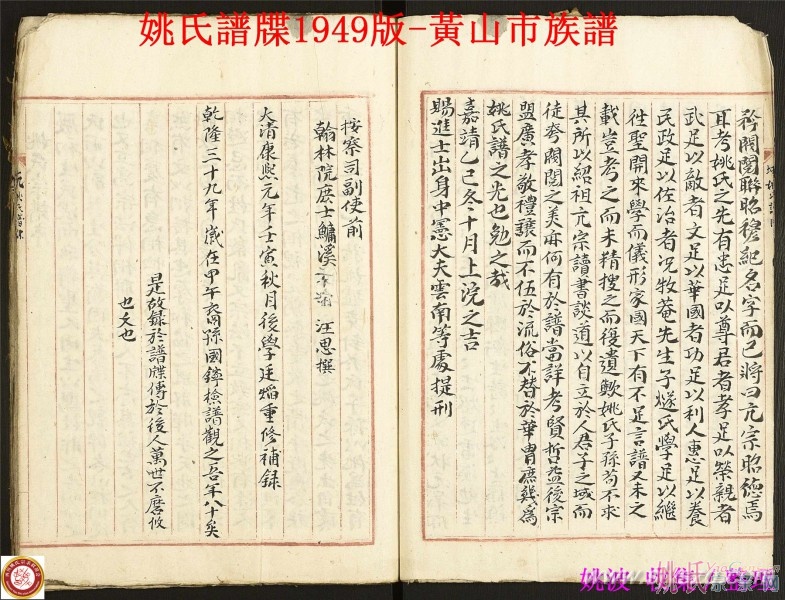 姚氏譜牒1949版-黃山市族譜
矜閥閱聯昭穆紀名字而已將曰亢宗昭德焉
耳考姚氏之先有忠足以尊君者孝足以榮親者
武足以敵者文足以華國者功足以利人惠足以養
民政足以佐治者况牧菴先生子燧氏學足以繼
徃聖開來學而儀形家國天下有不足言譜又未之
載豈考之而未精搜之而復遺歟姚氏子孫苟不求
其所以紹祖亢宗讀書談道以自立於人君子之域而
徒夸閥閱之美亦何有於譜當詳考賢哲益後宗
盟廣孝敬禮讓而不伍於流俗不替於華胄庶幾為
姚氏譜之光也勉之哉
嘉靖乙巳冬十月上浣之吉
賜進士出身中憲大夫雲南等處提刑
按察司副使前
翰林院庶士鱅溪 汪思撰
大清康熙元年壬寅秋月後學廷焰重修補録
乾隆三十九年歲在甲午裔孫國鑏檢譜觀之吾年八十矣
是故録於譜牒傳於後人萬世不磨攸
也文也
姚波